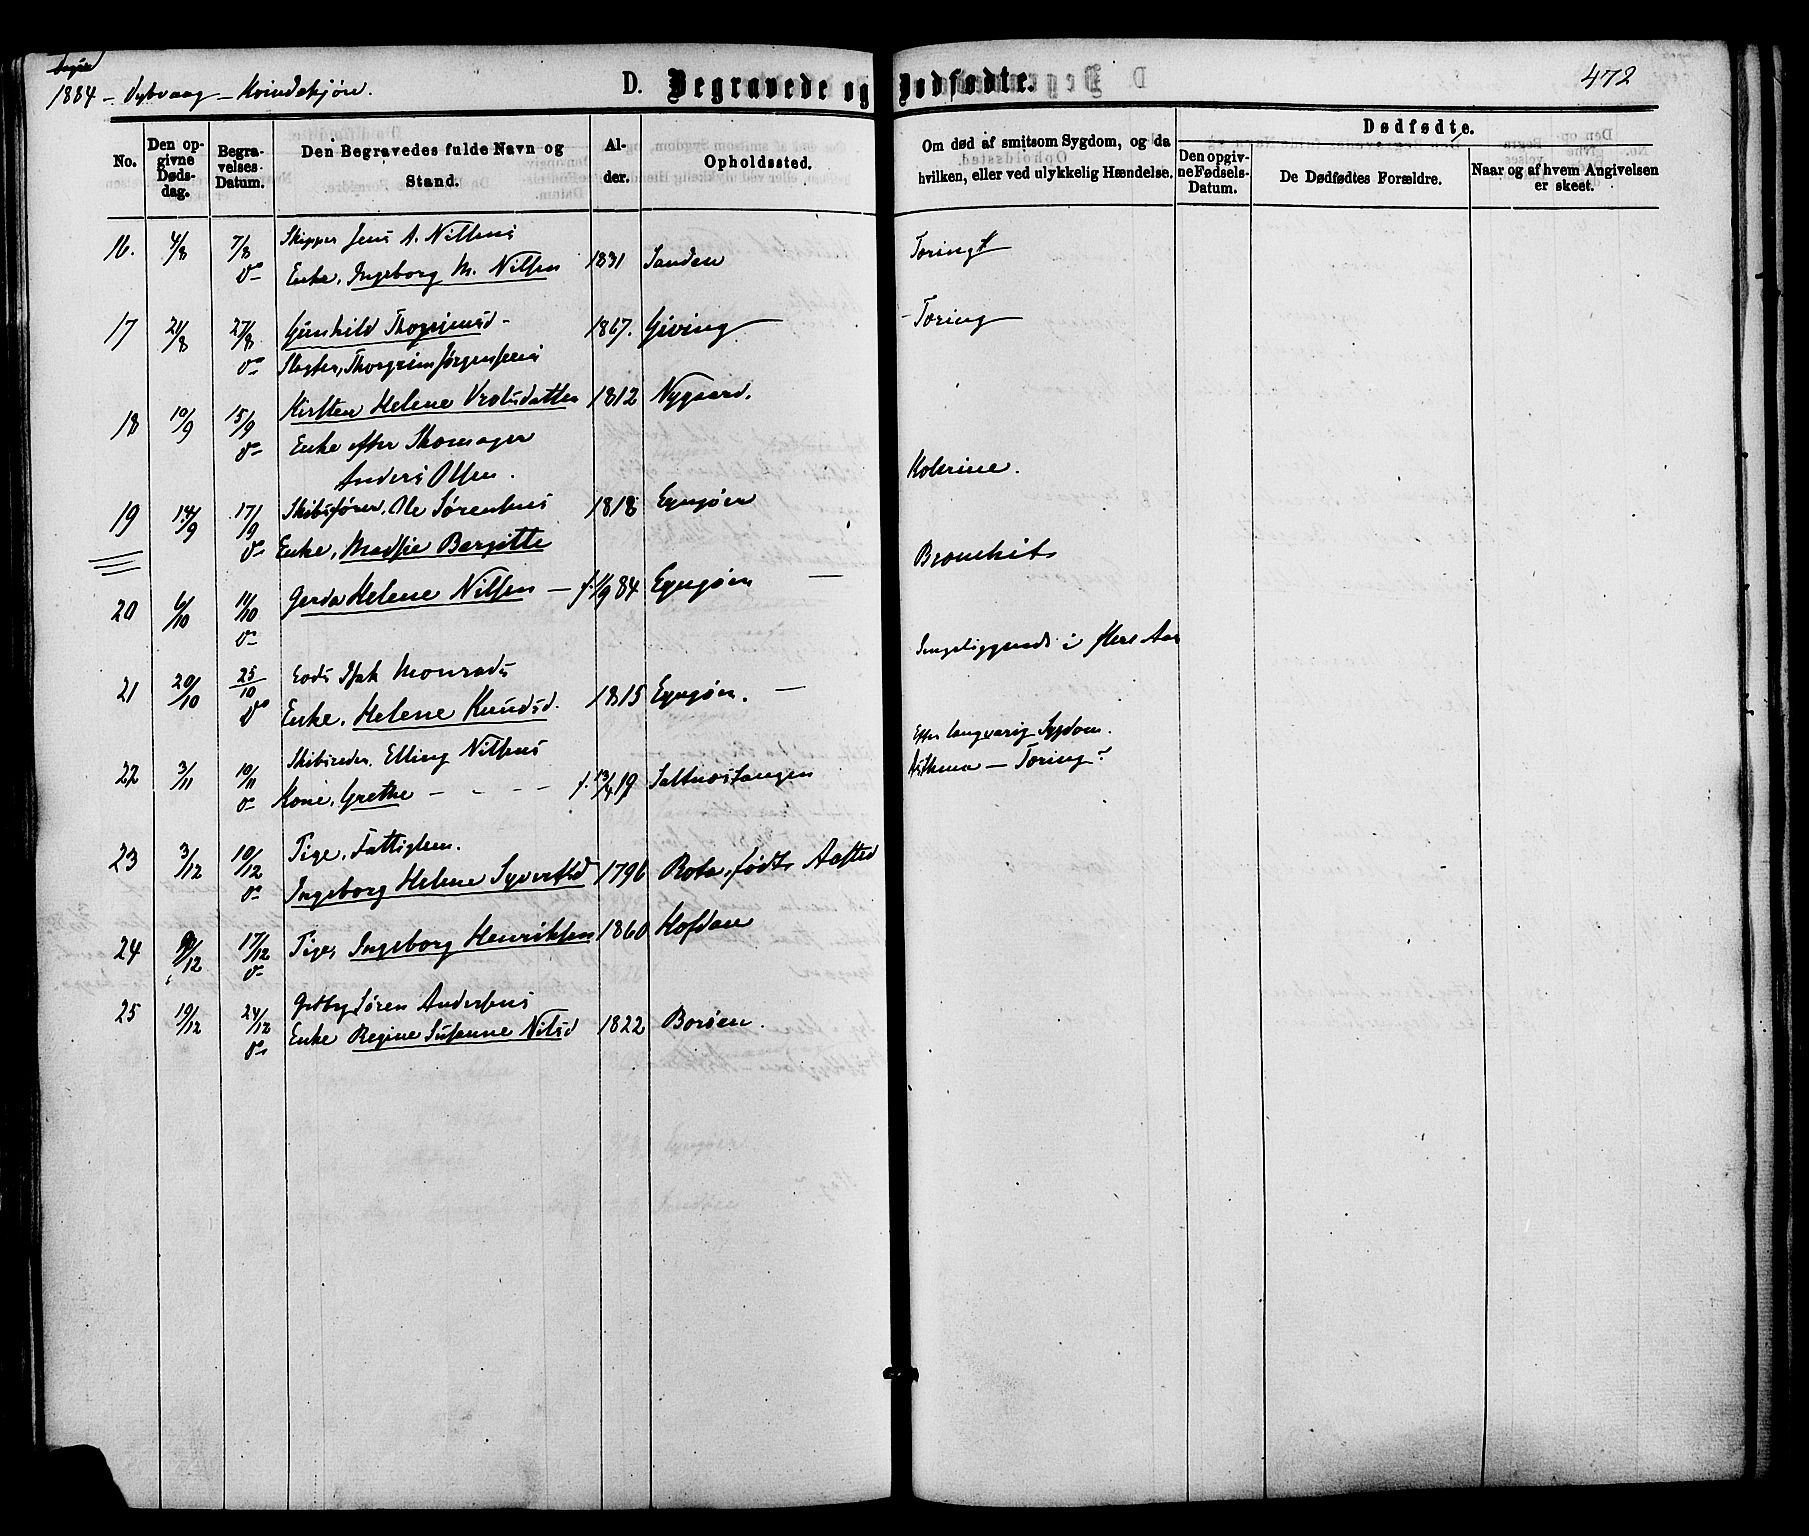 1884 – Dybvaag – Kvindekjøn.
D. Begravede og Dødfødte.
472
No.
Den opgivne Dødsdag.
Begravelses-Datum.
Den Begravedes fulde Navn og Stand.
Alder.
Opholdssted.
Om død af smitsom Sygdom, og da hvilken, eller ved ulykkelig Hændelse.
Dødfødte.
Den opgivne Fødsels-Datum.
De Dødfødtes Forældre.
Naar og af hvem Angivelsen er skeet.
16. 4/8 7/8 Skipper Jens A. Nilsens
Enke, Ingeborg M. Nilsen 1831 Sanden Tæring
17 21/8 27/8 Gunhild 1867. Giving Tæring
18 10/9 15/9 Kirsten Helene 1812 Nygaard.
Enke efter Skomager
Anders Olsen. Kolerine.
19 14/9 17/9 Skibsfører, Ole Sørensens 1818 Egvsøen
Enke, Madsie Bergitte Bronchit
20 6/10 11/10 Gerda Helene Nilsen – f. 1/9 84 Egvsøen –
Sengeliggende i flere Aar
21 20/10 25/10 Lods Isak Monrads
Enke, Helene Knudsd. 1815 Egvsøen. –
Efter langvarig Sygdom.
22 3/11 10/11 Skibsreder, Elling Nilsens
Kone, Grethe – – – – f. 13/4 19 Saltnestangen Asthma – Tæring?
23 3/12 10/12 Pige, Fattiglem.
Ingeborg Helene Syvertsd 1796 Rota, født Aasted
24 9/12 17/12 Pige, Ingeborg Henriksen 1860 Hofdan
25 19/12 24/12 Søren Andersens
Enke Regine Susanne Nilsd 1822 Borøen.